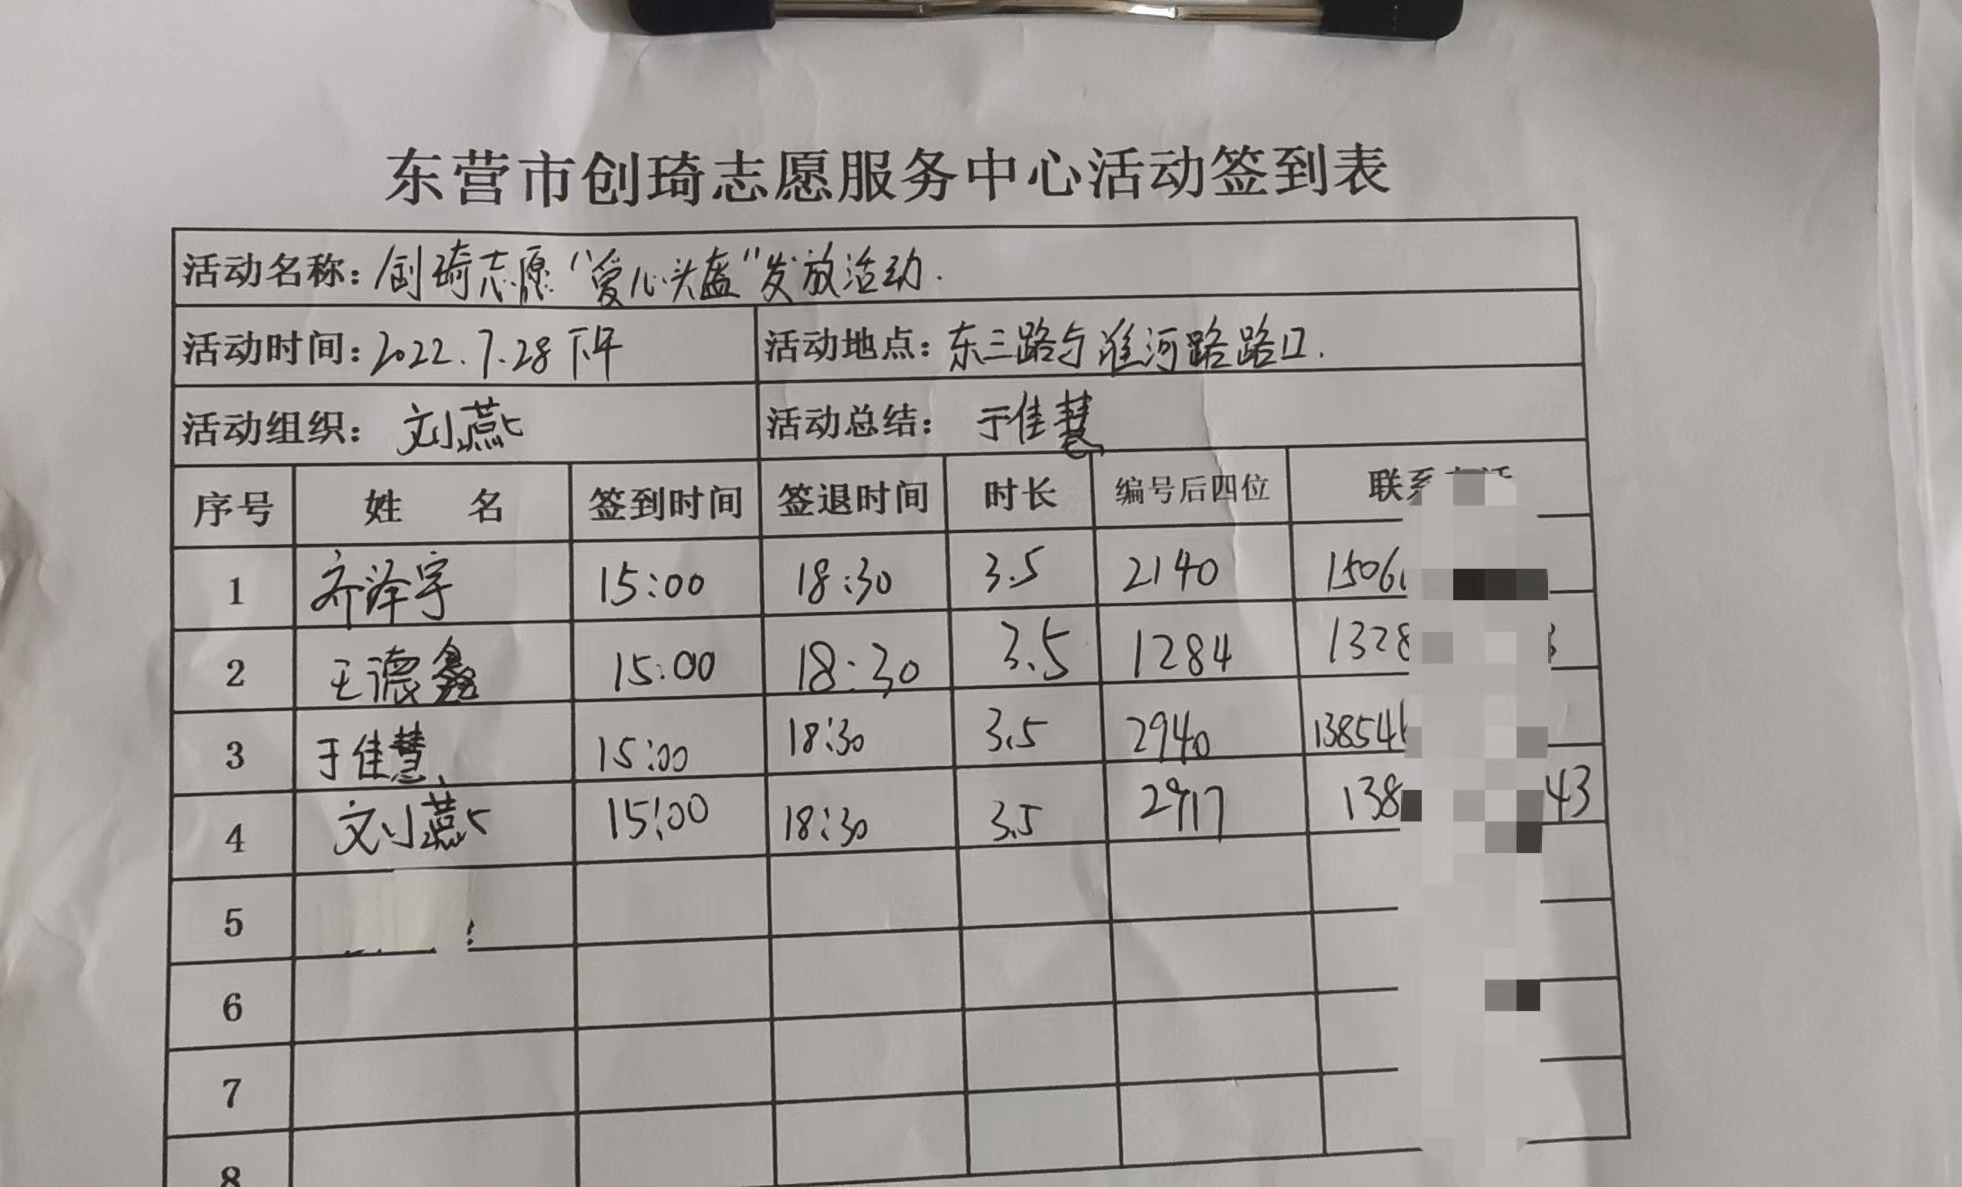 东营市创琦志愿服务中心活动签到表
活动名称：创琦志愿“爱心头盔”发放活动.
活动时间：2022.7.28下午 活动地点：东三路与淮河路路口.
活动组织：刘燕 活动总结：于佳慧
序号 姓 名 签到时间 签退时间 时长 编号后四位 联系
1 齐泽宇 15:00 18:30 3.5 2140 1506
2 王德鑫 15:00 18:30 3.5 1284 1328
3 于佳慧 15:00 18:30 3.5 2940 13854
4 刘燕 15:00 18:30 3.5 2917 138 43
5
6
7
8